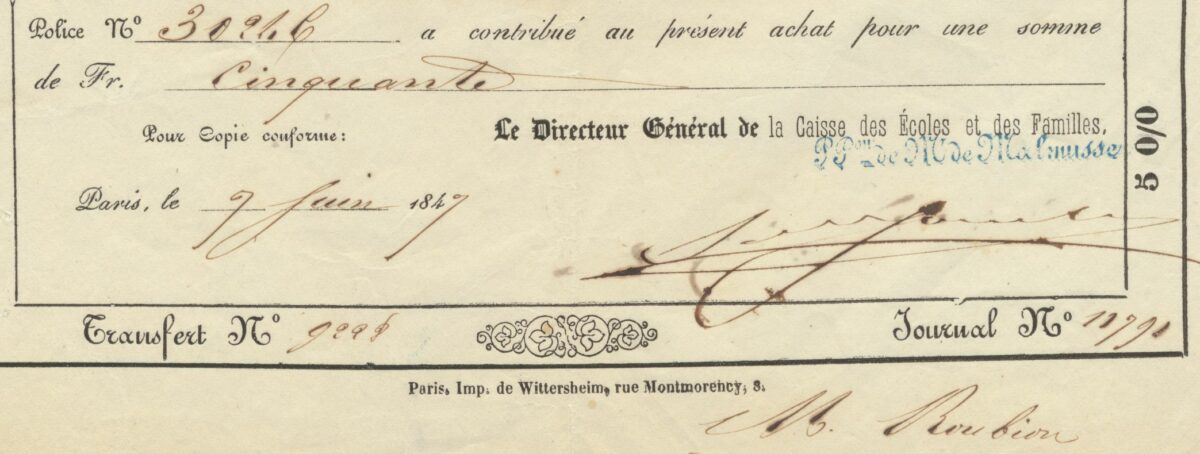 Police Nº 30246 a contribué au présent achat pour une somme
de Fr. Cinquante
Pour Copie conforme: Le Directeur Général de la Caisse des Écoles et des Familles,
PPon de Mr de Malmusse
5 0/0
Paris, le 9 Juin 1847
Transfert Nº 9225 Journal Nº 11791
Paris, Imp. de Wittersheim, rue Montmorency, 8.
M. Roubion